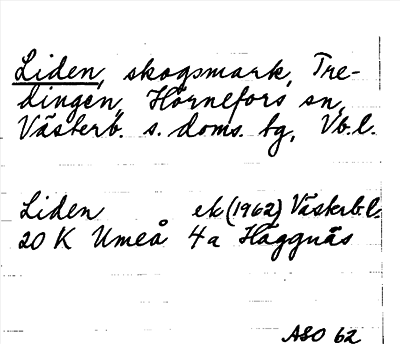 Liden, skogsmark, Tre-
dingen, Hörnefors sn,
Västerb. s. doms. tg, Vb.l.
Liden ek (1962) Västerb.l.
20 K Umeå 4a Häggnäs
ASO 62